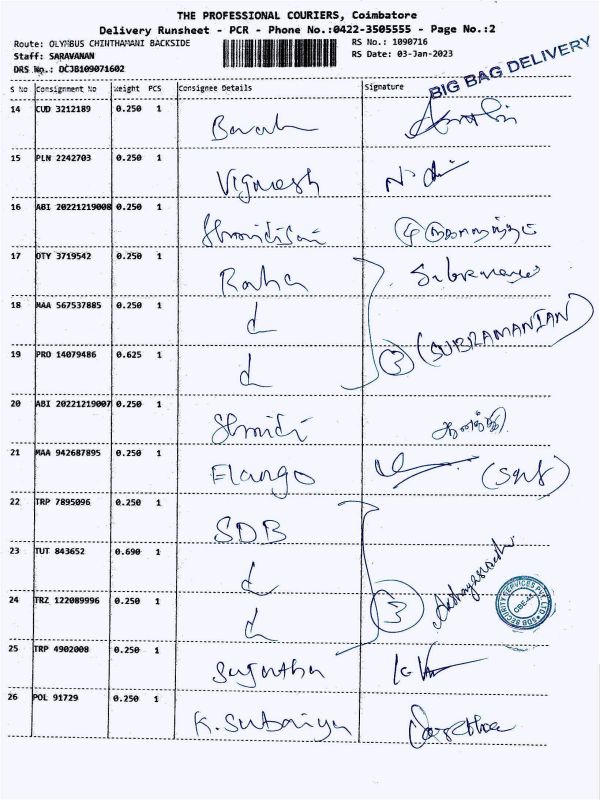 THE PROFESSIONAL COURIERS, Coimbatore
Delivery Runsheet - PCR - Phone No.:0422-3505555 - Page No.:2
Route: OLYMBUS CHINTHAMANI BACKSIDE RS No.: 1090716
Staff: SARAVANAN RS Date: 03-Jan-2023
DRS No.: DCJB109071602
BIG BAG DELIVERY
S No Consignment No Weight PCS Consignee Details Signature
14 CUD 3212189 0.250 1
15 PLN 2242703 0.250 1 Vignesh
16 ABI 20221219008 0.250 1
17 OTY 3719542 0.250 1
18 MAA 567537885 0.250 1 d
(SUBRAMANIAN)
19 PRO 14079486 0.625 1 d 3
20 ABI 20221219007 0.250 1
21 MAA 942687895 0.250 1 Elango
22 TRP 7895096 0.250 1 SDB
23 TUT 843652 0.690 1 d
24 TRZ 122089996 0.250 1 d 3
25 TRP 4902008 0.250 1 Sujatha
26 POL 91729 0.250 1 K. Subaiya